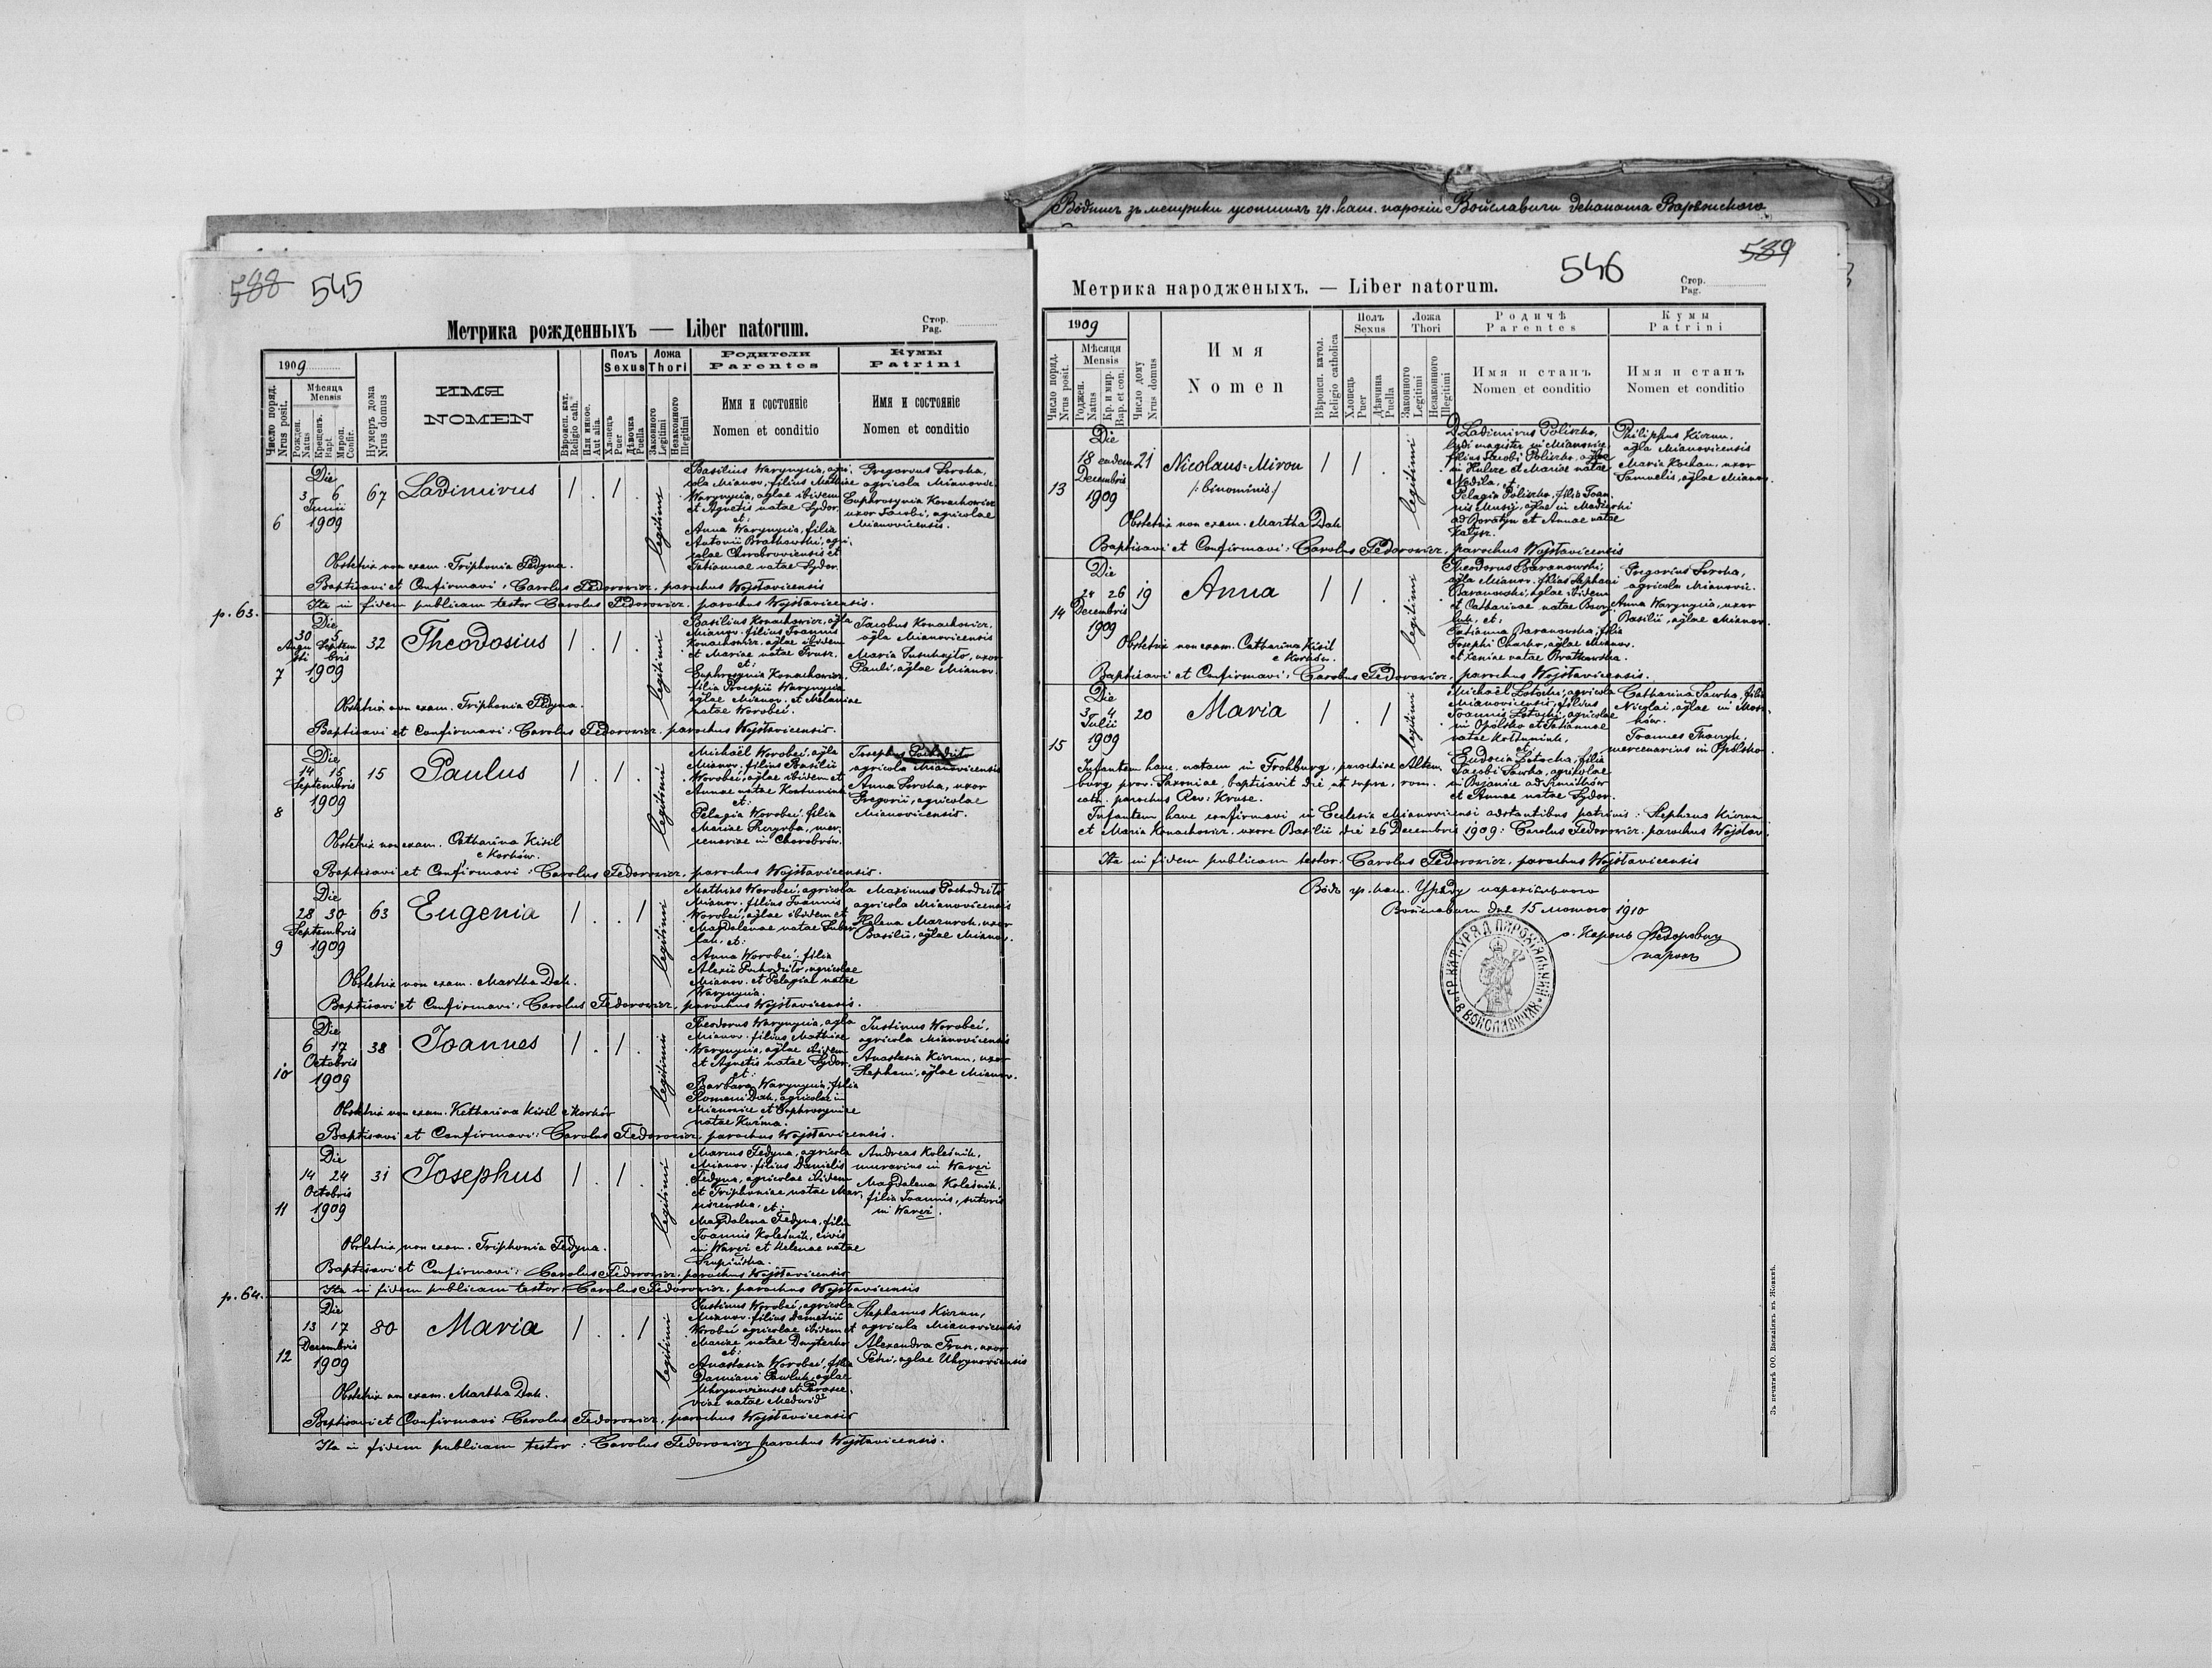 588 545
Метрика рожденныхъ — Liber natorum.
Стор.
Pag.
1909
Число поряд.
Nrus posit.
Мѣсяца
Mensis
Рожден.
Natus
Крещенъ
Bapt.
Мѵроп.
Confir.
Нумеръ дома
Nrus domus
ИМЯ
NOMEN
Вѣроисп. кат.
Religio cath.
Или иное.
Aut alia.
Полъ
Sexus
Хлопецъ
Puer
Дѣвочка
Puella
Ложа
Thori
Законного
Legitimi
Незаконного
Illegitimi
Родители
Parentes
Имя и состояніе
Nomen et conditio
Кумы
Patrini
Имя и состояніе
Nomen et conditio
6
Die
3 6
Junii
1909
67
Ladimirus
1 . 1 .
legitimi
Basilius Warynycia, agri-
cola Mianov. filius Mathiae
Warynycia, aglae ibidem
et Agnetis natae Sydor.
et:
Anna Warynycia, filia
Antonii Bratkowski, agri-
colae Chorobroviensis et
Tatiannae natae Sydor.
Gregorius Soroka,
agricola Mianovic.
Euphrosynia Konachowicz
uxor Jacobi, agricolae
Mianovicensis.
Obstetrix non exam. Triphonia Fedyna.
Baptisavi et Confirmavi: Carolus Fedorowicz, parochus Wojsławicensis
p. 63.
Ita in fidem publicam testor Carolus Fedorowicz, parochus Wojsławicensis.
7
Die
30 5
Augu Septem
sti bris
1909
32
Theodosius
1 . 1 .
legitimi
Basilius Konachowicz, agla
Mianov. filius Joannis
Konachowicz, aglae ibidem
et Mariae natae Frusz.
et:
Euphrosynia Konachowicz,
filia Procopii Warynycia
aglae Mianov. et Melaniae
natae Worobeć.
Jacobus Konachowicz,
agla Mianovicensis
Pauli, aglae Mianov.
Obstetrix non exam. Triphonia Fedyna.
Baptisavi et Confirmavi: Carolus Fedorowicz, parochus Wojsławicensis.
8
Die
14 15
Septembris
1909
15
Paulus
1 . 1 .
legitimi
Michaël Worobeć, agla
Mianov. filius Basilii
Worobeć, aglae ibidem et
Annae natae
et:
Pelagia Worobeć, filia
Mariae mer-
cenariae in Chorobrów.
Josephus Pochodiło
agricola Mianovicensis
Anna Soroka, uxor
Gregorii, agricolae
Mianovicensis.
Obstetrix non exam. Catharina Kisil
e Korków.
Baptisavi et Confirmavi: Carolus Fedorowicz, parochus Wojsławicensis.
9
Die
28 30
Septembris
1909
63
Eugenia
1 . . 1
legitimi
Mathias Worobeć, agricola
Mianov. filius Joannis
Worobeć, aglae ibidem et
Magdalenae natae
et:
Anna Worobeć, filia
Alexii Pochodiło, agricolae
Mianov. et Pelagiae natae
Warynycia.
Maximus Pochodiło
agricola Mianovicensis
Helena Mazurok, uxor
Basilii, aglae Mianov.
Obstetrix non exam. Martha Dak.
Baptisavi et Confirmavi: Carolus Fedorowicz, parochus Wojsławicensis.
10
Die
6 17
Octobris
1909
38
Joannes
1 . 1 .
legitimi
Theodorus Warynycia, agla
Mianov. filius Mathiae
Warynycia, aglae ibidem
et Agnetis natae Sydor,
et:
Barbara Warynycia, filia
Romani Dak, agricolae in
Mianowice et Euphrosyniae
natae Kuźma.
Justinus Worobeć,
agricola Mianovicensis
Anastasia Kiczun, uxor
Stephani, aglae Mianov.
Obstetrix non exam. Katharina Kisil e Korków
Baptisavi et Confirmavi: Carolus Fedorowicz, parochus Wojsławicensis.
11
Die
14 24
Octobris
1909
31
Josephus
1 . 1 .
legitimi
Marcus Fedyna, agricola
Mianov. filius Danielis
Fedyna, agricolae ibidem
et Triphoniae natae Mar-
et:
Magdalena Fedyna, filia
Joannis Koleśnik, civis
in Waręż et Helenae natae
Andreas Koleśnik,
murarius in Waręż
Magdalena Koleśnik,
filia Joannis, sutoris
in Waręż.
Obstetrix non exam. Triphonia Fedyna.
Baptisavi et Confirmavi: Carolus Fedorowicz, parochus Wojsławicensis
p. 64.
Ita in fidem publicam testor Carolus Fedorowicz, parochus Wojsławicensis
12
Die
13 17
Decembris
1909
80
Maria
1 . . 1
legitimi
Justinus Worobeć, agricola
Mianov. filius Demetrii
Worobeć agricolae ibidem et
Mariae natae
et:
Anastasia Worobeć, filia
Damiani Pawluk, aglae
Uhrynoviensis et Parasce-
viae natae Medwid
Stephanus Kiczun,
agricola Mianovicensis
Alexandra Frusz, uxor
Petri, aglae Uhrynoviensis
Obstetrix non exam. Martha Dak.
Baptisavi et Confirmavi: Carolus Fedorowicz, parochus Wojsławicensis
Ita in fidem publicam testor: Carolus Fedorowicz parochus Wojsławicensis.
Відпис зъ метрики усопшихъ гр. кат. парохіи Войславичи деканата Варяжского
546 589
Метрика народженыхъ. — Liber natorum.
Стор.
Pag.
1909
Число поряд.
Nrus posit.
Мѣсяця
Mensis
Роджен.
Natus
Кр. и мир.
Bap. et con.
Число дому
Nrus domus
Имя
Nomen
Вѣроисп. катол.
Religio catholica
Полъ
Sexus
Хлопець
Puer
Дѣвчина
Puella
Ложа
Thori
Законного
Legitimi
Незаконного
Illegitimi
Родичѣ
Parentes
Имя и станъ
Nomen et conditio
Кумы
Patrini
Имя и станъ
Nomen et conditio
13
Die
18 eadem
Decembris
1909
21
Nicolaus-Miron
/: binominis :/
1 1 .
legitimi
D. Ladimirus Poliszko,
ludi magister in Mianowice,
filius Jacobi Poliszko, aglae
in Hulcze et Mariae natae
Nadila, et,
Pelagia Poliszko, filia Joan-
nis Musij, aglae in
et Annae natae
Philippus Kiczun,
agla Mianovicensis
Maria Kochan, uxor
Samuelis, aglae Mianov.
Obstetrix non exam. Martha Dak
Baptisavi et Confirmavi: Carolus Fedorowicz, parochus Wojsławicensis
14
Die
24 26
Decembris
1909
19
Anna
1 1 .
legitimi
Theodorus Baranowski,
agla Mianov. filius Stephani
Baranowski, aglae ibidem
et Catharinae natae
et:
Tatianna Baranowska, filia
Josephi aglae Mianov.
et Xeniae natae Bratkowska.
Gregorius Soroka,
agricola Mianovic.
Anna Warynycia, uxor
Basilii, aglae Mianov.
Obstetrix non exam. Catharina Kisil
e Korków.
Baptisavi et Confirmavi: Carolus Fedorowicz, parochus Wojsławicensis.
15
Die
3 4
Julii
1909
20
Maria
1 . 1
legitimi
Michaël Łotocki, agricola
Mianovicensis, filius
Joannis Łotocki, agricolae
in Opolsko et Tatiannae
natae
et:
Eudocia Łotocka, filia
Jacobi Sawka, agricolae
et Annae natae Sydor.
Catharina Sawka, filia
Nicolai, aglae in
Joannes
mercenarius in Opolsko
Infantem hanc, natam in Frohburg, parochiae Alten-
burg, prov. Saxoniae, baptisavit die ut supra, rom.
cath. parochus Rev: Kruse.
Infantem hanc confirmavi in Ecclesia Mianovicensi adstantibus patrinis: Stephano Kiczun
et Maria Konachowicz, uxore Basilii die 26 Decembris 1909: Carolus Fedorowicz, parochus Wojsław.
Ita in fidem publicam testor: Carolus Fedorowicz, parochus Wojsławicensis
Відъ гр. кат. Уряду парохіяльного
Войславичи дня 15 лютого 1910
о. Кароль Федорович
парох
ГР. КАТ. УРЯД ПАРОХІЯЛЬНИЙ В ВОЙСЛАВИЧАХ
Зъ печатнѣ ОО. Василіянъ въ Жовквѣ.